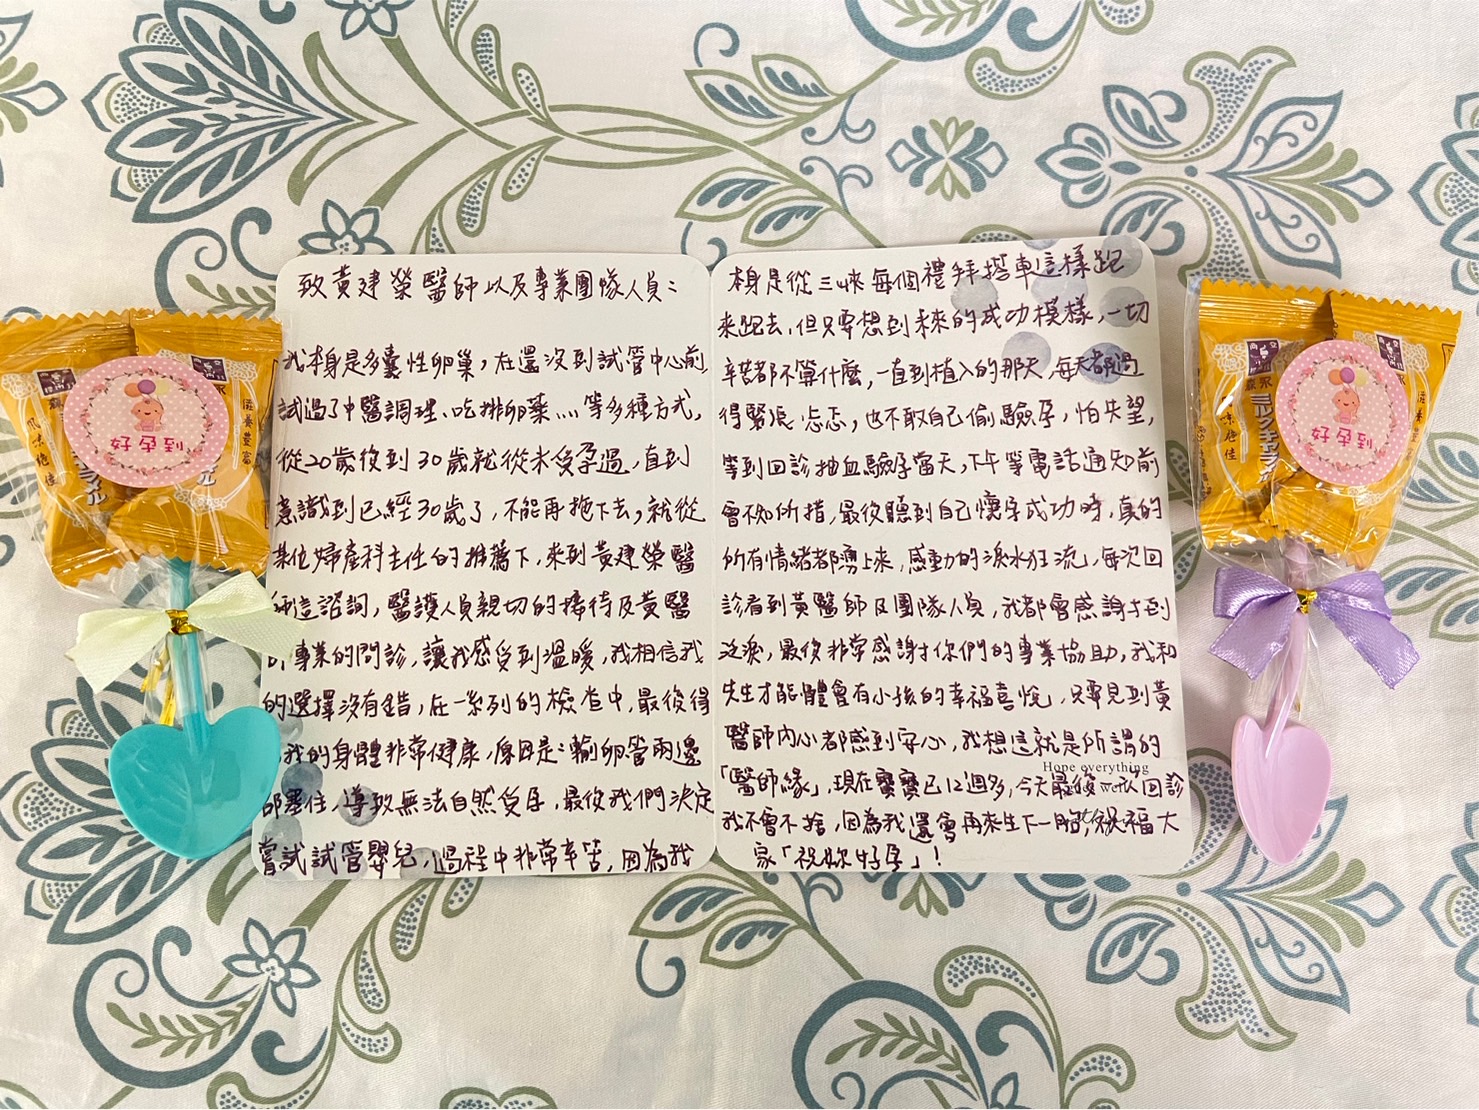 致黃建榮醫師以及專業團隊人員：
我本身是多囊性卵巢，在還沒到試管中心前，
試過了中醫調理、吃排卵藥...等多種方式，
從20歲後到30歲就從未受孕過，直到
意識到已經30歲了，不能再拖下去，就從
某位婦產科主任的推薦下，來到黃建榮醫
師這諮詢，醫護人員親切的接待及黃醫
師專業的問診，讓我感受到溫暖，我相信我
的選擇沒有錯，在一系列的檢查中，最後得
我的身體非常健康，原因是：輸卵管兩邊
都塞住，導致無法自然受孕，最後我們決定
嘗試試管嬰兒，過程中非常辛苦，因為我
本身是從三峽每個禮拜搭車這樣跑
來跑去，但只要想到未來的成功模樣，一切
辛苦都不算什麼，一直到植入的那天，每天都過
得緊張 忐忑，也不敢自己偷驗孕，怕失望，
等到回診抽血驗孕當天，下午等電話通知前
會不知所措，最後聽到自己懷孕成功時，真的
所有情緒都湧上來，感動的淚水狂流，每次回
診看到黃醫師及團隊人員，我都會感謝才到
泣淚，最後非常感謝你們的專業協助，我和
先生才能體會有小孩的幸福喜悅，只要見到黃
醫師內心都感到安心，我想這就是所謂的
「醫師緣」，現在寶寶已12週多，今天最後一次回診
我不會不捨，因為我還會再來生下一胎，祝福大
家「祝妳好孕」！
Hope everything
好孕到
森永
ミルクキャラメル
風味絕佳
滋養豐富
好孕到
森永
ミルクキャラメル
滋養豐富